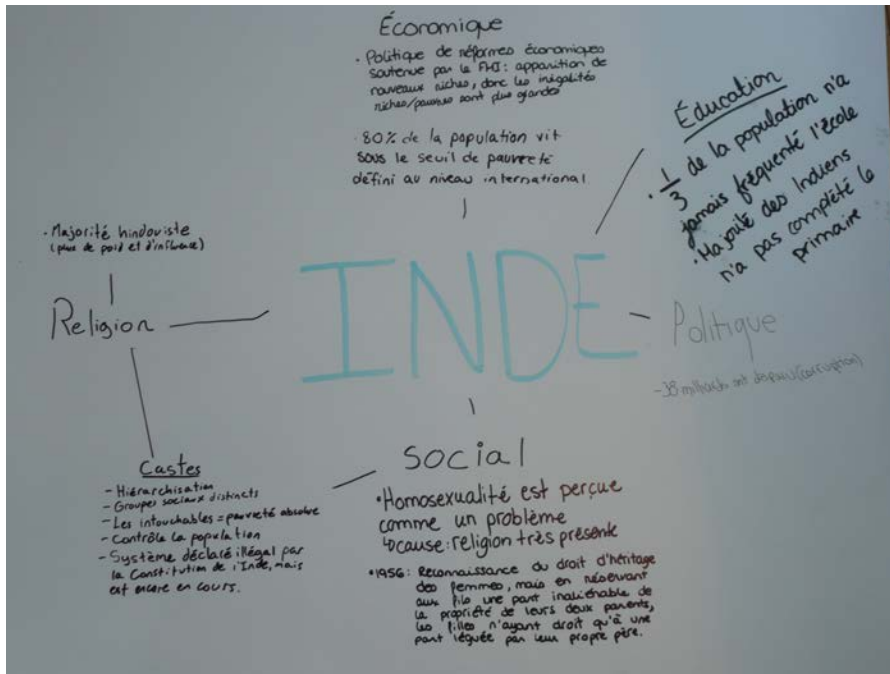 Économique
• Politique de réformes économiques
soutenue par le FMI : apparition de
nouveaux riches, donc les inégalités
riches/pauvres sont plus grandes
• 80% de la population vit
sous le seuil de pauvreté
défini au niveau international
Éducation
• 1/3 de la population n'a
jamais fréquenté l'école
• Majorité des Indiens
n'a pas complété le
primaire
• Majorité hindouiste
(plus de poid et d'influence)
Religion
INDE
Politique
- 38 milliards ont disparu (corruption)
Castes
- Hiérarchisation
- Groupes sociaux distincts
- Les intouchables = pauvreté absolue
- Contrôle la population
- Système déclaré illégal par
la Constitution de l'Inde, mais
est encore en cours.
Social
• Homosexualité est perçue
comme un problème
↳ cause : religion très présente
• 1956 : Reconnaissance du droit d'héritage
des femmes, mais en réservant
aux fils une part inaliénable de
la propriété de leurs deux parents,
les filles n'ayant droit qu'à une
part léguée par leur propre père.